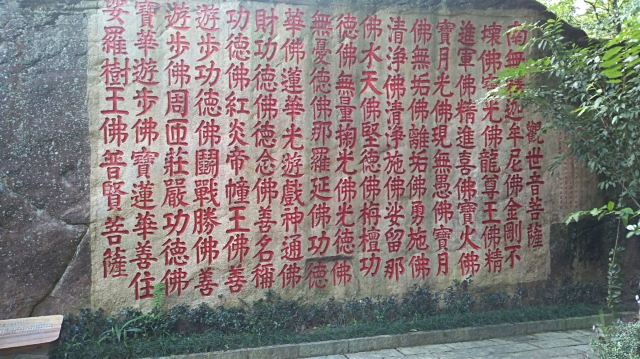 觀世音菩薩
南無釋迦牟尼佛金剛不
壞佛寶光佛龍尊王佛精
進軍佛精進喜佛寶火佛
寶月光佛現無愚佛寶月
佛無垢佛離垢佛勇施佛
清淨佛清淨施佛娑留那
佛水天佛堅德佛栴檀功
德佛無量掬光佛光德佛
無憂德佛那羅延佛功德
華佛蓮華光遊戲神通佛
財功德佛德念佛善名稱
功德佛紅炎帝幢王佛善
遊步功德佛鬪戰勝佛善
遊步佛周匝莊嚴功德佛
寶華遊步佛寶蓮華善住
娑羅樹王佛普賢菩薩